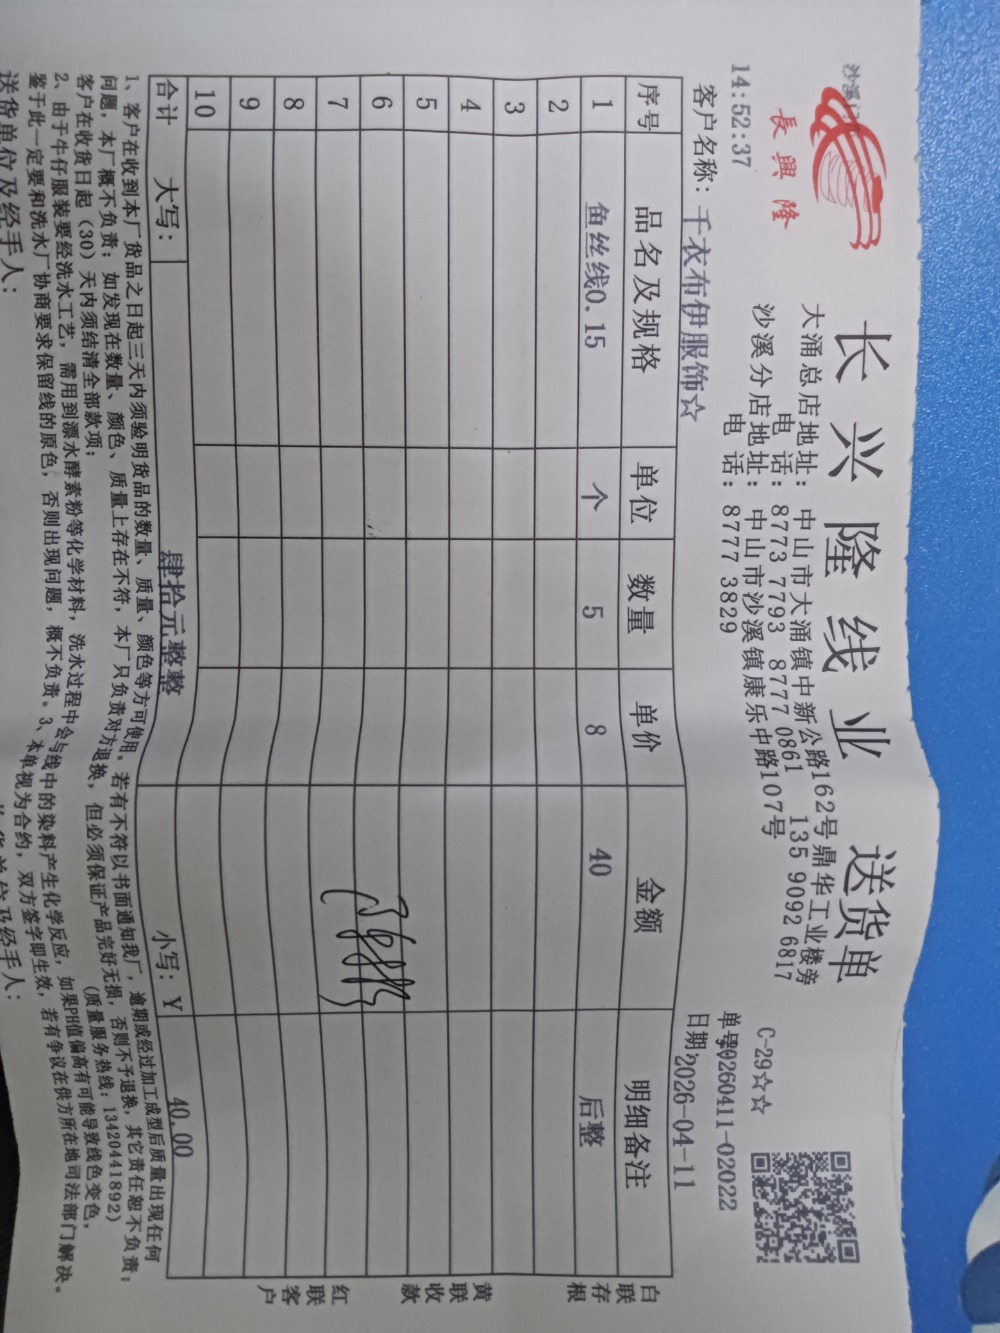 長興隆
长兴隆线业 送货单
大涌总店地址：中山市大涌镇中新公路162号鼎华工业楼旁
电 话：8773 7793 8777 0861 135 9092 6817
沙溪分店地址：中山市沙溪镇康乐中路107号
电 话：8777 3829
C-29☆☆
14:52:37
单号:20260411-02022
客户名称：千衣布伊服饰☆
日期:2026-04-11
序号 品名及规格 单位 数量 单价 金额 明细备注
1 鱼丝线0.15 个 5 8 40 后整
2
3
4
5
6
7
8
9
10
合计 大写： 肆拾元整整 小写：￥ 40.00
白联存根
黄联收款
红联客户
1、客户在收到本厂货品之日起三天内须验明货品的数量、质量、颜色等方可使用。若有不符以书面通知我厂，逾期或经过加工成型后质量出现任何
问题，本厂概不负责；如发现在数量、颜色、质量上存在不符，本厂只负责对方退换，但必须保证产品完好无损，否则不予退换，其它责任恕不负责；
客户在收货日起（30）天内须结清全部款项； （质量服务热线：13420441892）
2、由于牛仔服装要经洗水工艺，需用到漂水酵素粉等化学材料，洗水过程中会与线中的染料产生化学反应，如果PH值偏高有可能导致线色变色，
鉴于此一定要和洗水厂协商要求保留线的原色，否则出现问题，概不负责。3、本单视为合约，双方签字即生效，若有争议在供方所在地司法部门解决。
送货单位及经手人：